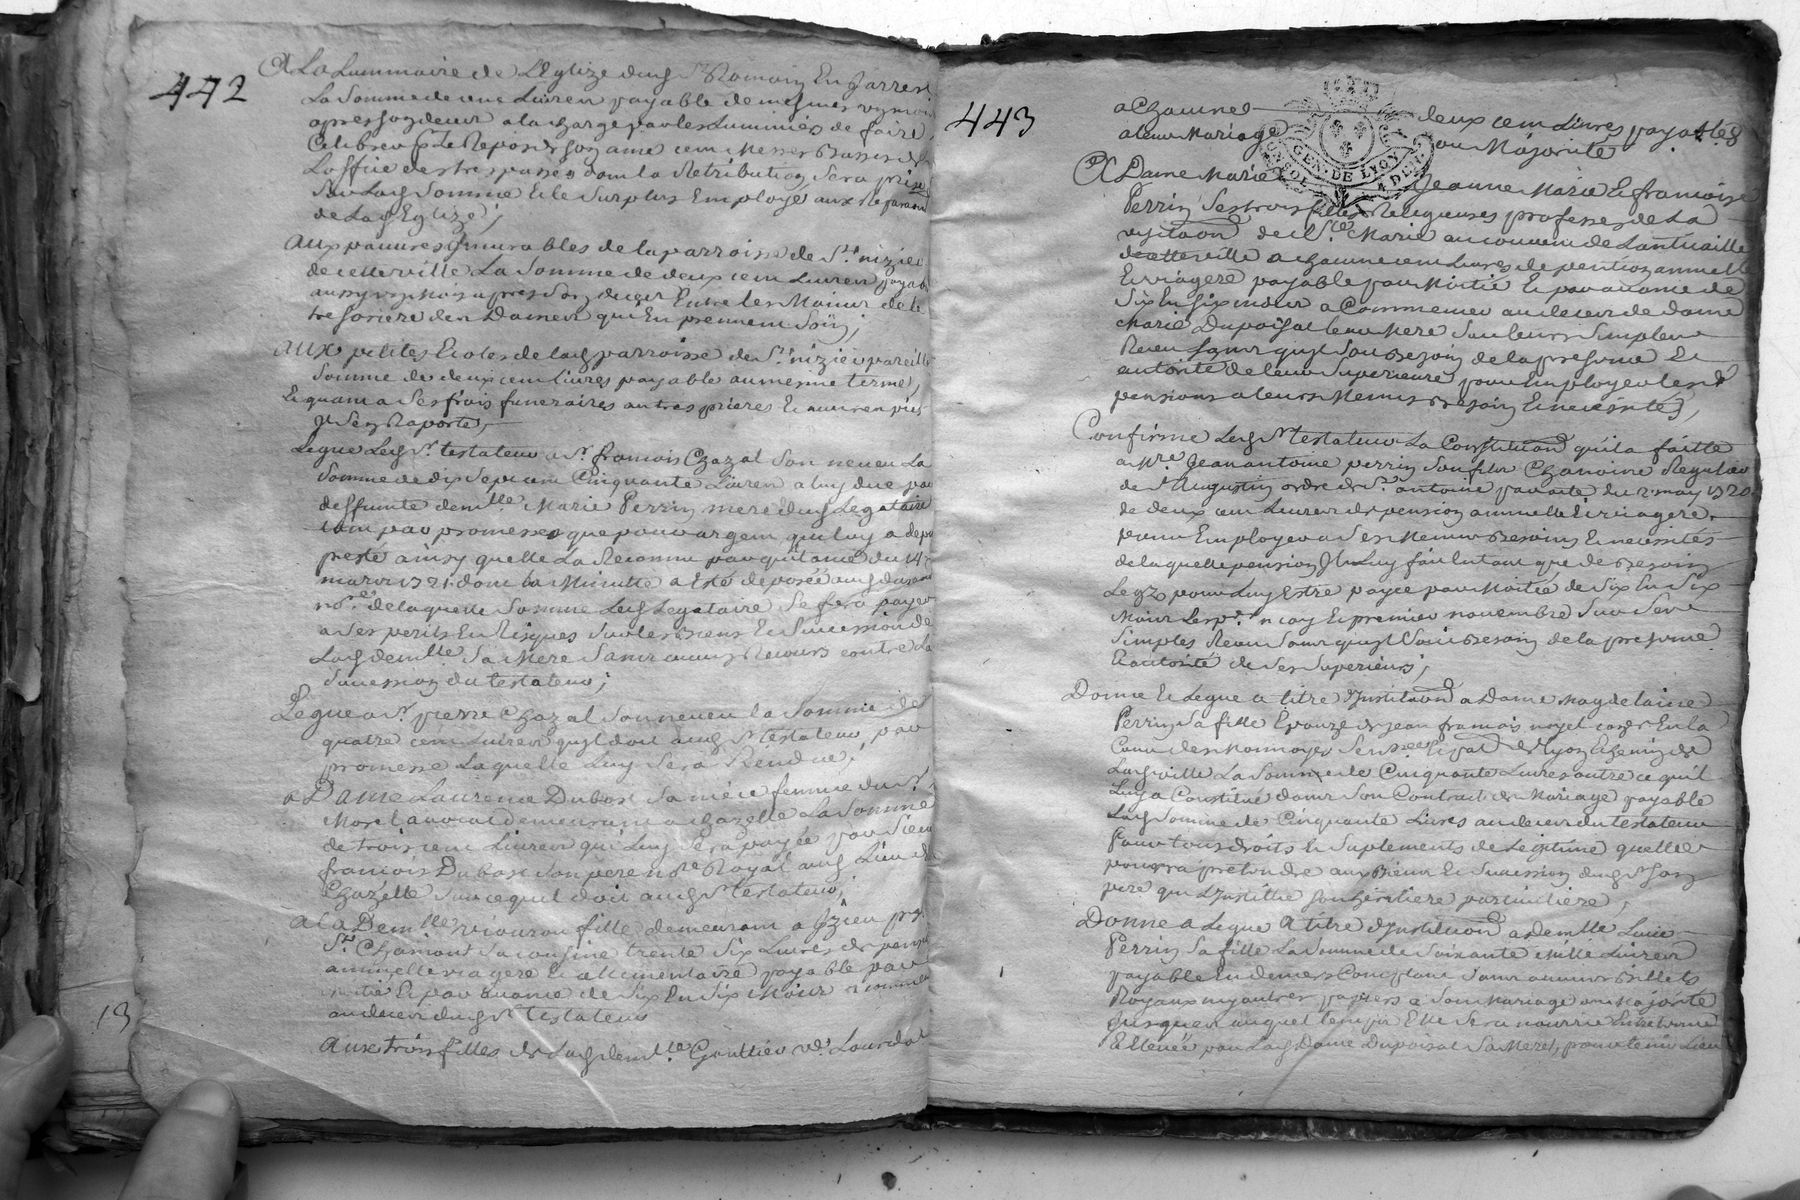 442
A La Luminaire de L'Eglize dud St Romain En Jarrest
La Somme de cent Livres payable de mesmes
apres son deces a la charge par les Luminiers de faire
Celebrer p. Le Repos de son ame cent Messes Basses de
L'office des trespassés dont la Retribution Sera prise
Sur Lad Somme Et le Surplus Employé aux Reparaons
de Lad Eglize;
Aux pauvres de la parroisse de St nizier
de cette ville La Somme de deux cent Livres payable
aussy Mois apres Son deces Entre les Mains de la
tresoriere des Dames qui En prennent Soin;
Aux petites Ecoles de lad parroisse de St nizier pareille
Somme de deux cent livres payable au mesme terme,
Et quant a Ses frais funeraires autres prieres Et œuvres pies
Il S'en Raporte,
Legue Led Sr testateur a Sr francois Chazal Son neveu La
Somme de dix Sept cent Cinquante Livres a luy due par
deffunte demlle Marie Perrin mere dud Legataire
tant par promesses que pour argent qu'il luy a depuis
presté ainsy qu'elle L'a Reconnu par quitance du
mars 1721 dont la Minutte a Esté deposée aud
nore de laquelle Somme Led Legataire Se fera payer
a Ses perils Et Risques Sur les Biens Et Succession de
Lad demlle Sa Mere Sans aucun Recours contre La
Succession du testateur;
Legue a Sr pierre Chazal Son neveu la Somme de
quatre cent Livres qu'il doit aud Sr testateur, par
promesse Laquelle Luy Sera Rendue;
a Dame Laurence Dubost Sa niece femme du Sr
Morel avocat demeurant a Chazelle La Somme
de trois cent Livres qui Luy Sera payée par Sieur
francois Dubost Son pere nore Royal aud Lieu de
Chazelle Sur ce qu'il doit aud Sr testateur;
A La Demlle fille demeurant a Izieu prez
St Chamont Sa cousine trente Six Livres de pension
annuelle viagere Et allimentaire payable par
moitié Et par avance de Six En Six Mois a commencer
au deces dud Sr testateur
Aux trois filles de Lad demlle Gaultier ve Lourdat
13
443
a Chacune deux cent Livres payables
a leur Mariage ou Majorité
A Dame Marie Jeanne Marie Et francoise
Perrin Ses trois filles Religieuses professes de La
visitaon de Ste Marie au couvent de Lantiquaille
de cette ville a chacune cent Livres de pention annuelle
Et viagere payable par Moitié Et par avance de
Six En Six mois a Commencer au deces de dame
Marie Dupoisat leur Mere Sur leurs Simples
Receu Sans qu'il Soit Besoin de la presence Et
autorité de leur Superieure pour Employer lesd
pensions a leurs Menus Besoins Et necessités,
Confirme Led Sr testateur La Constitution qu'il a faitte
a Mre Jean antoine perrin Son fils Chanoine Regulier
de St Augustin ordre de St antoine par acte du 2 may 1720
de deux cent Livres de pension annuelle Et viagere
pour Employer a Ses Menus Besoins Et necessités
de laquelle pension Il Luy fait En tant que de Besoin
Legz pour Luy Estre payée par Moitié de Six En Six
Mois Les pers may Et premier novembre Sur Ses
Simples Receus Sans qu'il Soit Besoin de la presence
Et autorité de Ses Superieurs;
Donne Et Legue a titre d'Institution a Dame Magdelaine
Perrin Sa fille Epouze de Jean francois noyel conser En la
Cour des Monnoyes Senéchaussée Et
Lad ville La Somme de Cinquante Livres outre ce qu'il
Luy a Constitué dans Son Contrait de Mariage payable
Lad Somme de Cinquante Livres au deces du testateur
pour tous droits Et Suplements de Legitime quelle
pourra pretendre aux Biens Et Succession dud Sr Son
pere qui L'Institue Son héritiere particuliere,
Donne a Legue A titre d'Institution a demlle Lucie
Perrin Sa fille La Somme de Soixante Mille Livres
payable En deniers Comptant Sans aucuns Billets
Royaux ny autres papiers a Son Mariage ou Majorité
Jusques auquel temps Elle Sera nourrie Entretenue
Et Elevée par Lad Dame Dupoisat Sa Mere, pour tenir Lieu
GEN. DE LYON